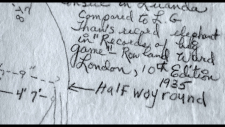 in Ruanda
Compared to E.G
Than's record elephant
in "Records of big
game" Rowland Ward
London, 10th Edition
1935
7-9"
4" 7"
Half way round